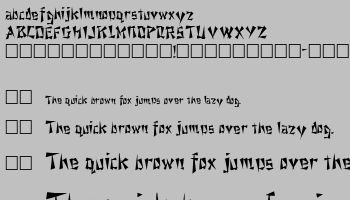 abcdefghijklmnopqrstuvwxyz
ABCDEFGHIJKLMNOPQRSTUVWXYZ
The quick brown fox jumps over the lazy dog.
The quick brown fox jumps over the lazy dog.
The quick brown fox jumps over the